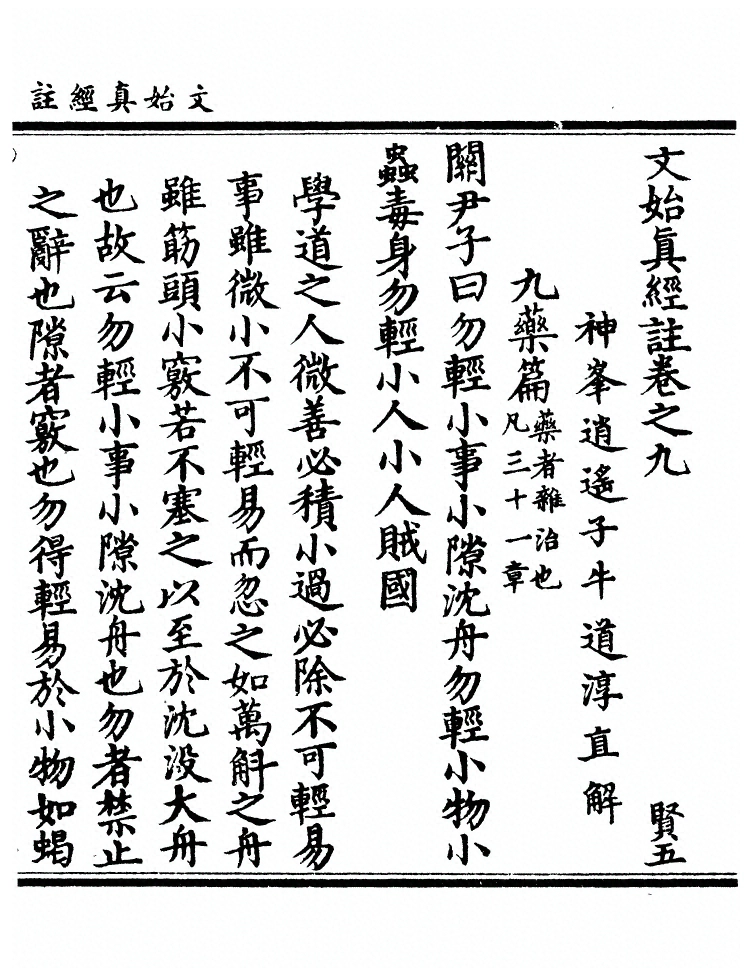 文始真經註
文始眞經註卷之九　賢五
神峯逍遙子牛道淳直解
九藥篇藥者雜治也
凡三十一章
關尹子曰勿輕小事小隙沈舟勿輕小物小
蟲毒身勿輕小人小人賊國
學道之人微善必積小過必除不可輕易
事雖微小不可輕易而忽之如萬斛之舟
雖筯頭小竅若不塞之以至於沈沒大舟
也故云勿輕小事小隙沈舟也勿者禁止
之辭也隙者竅也勿得輕易於小物如蝎